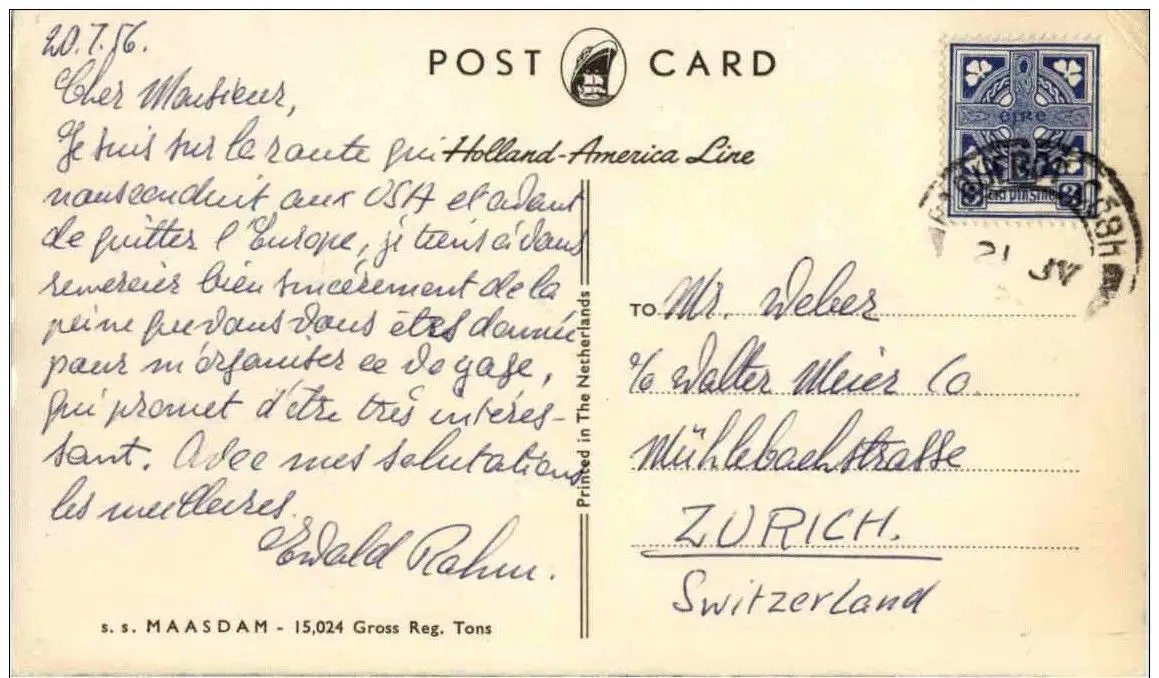 20.7.56.
Cher Monsieur,
Je suis sur la route qui
nous conduit aux USA et avant
de quitter l'Europe, je tiens à vous
remercier bien sincèrement de la
peine que vous vous êtes donnée
pour m'organiser ce voyage,
qui promet d'être très intéres-
sant. Avec mes salutations
les meilleures.
Ewald Rahm.
s. s. MAASDAM - 15,024 Gross Reg. Tons
POST CARD
Holland-America Line
Printed in The Netherlands
éire
3
TO Mr. Weber
c/o Walter Meier Co.
Mühlebachstrasse
ZURICH.
Switzerland
21 JY